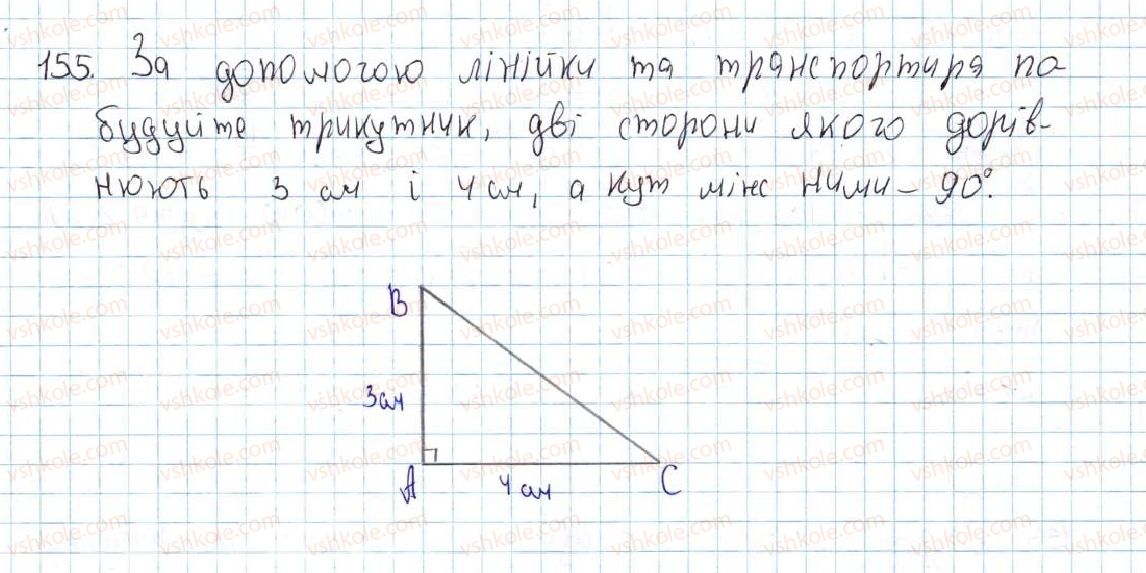 155. За допомогою лінійки та транспортира по
будуйте трикутник, дві сторони якого дорів-
нюють 3 см і 4 см, а кут між ними – 90°.
B
3см
A
4 см
C